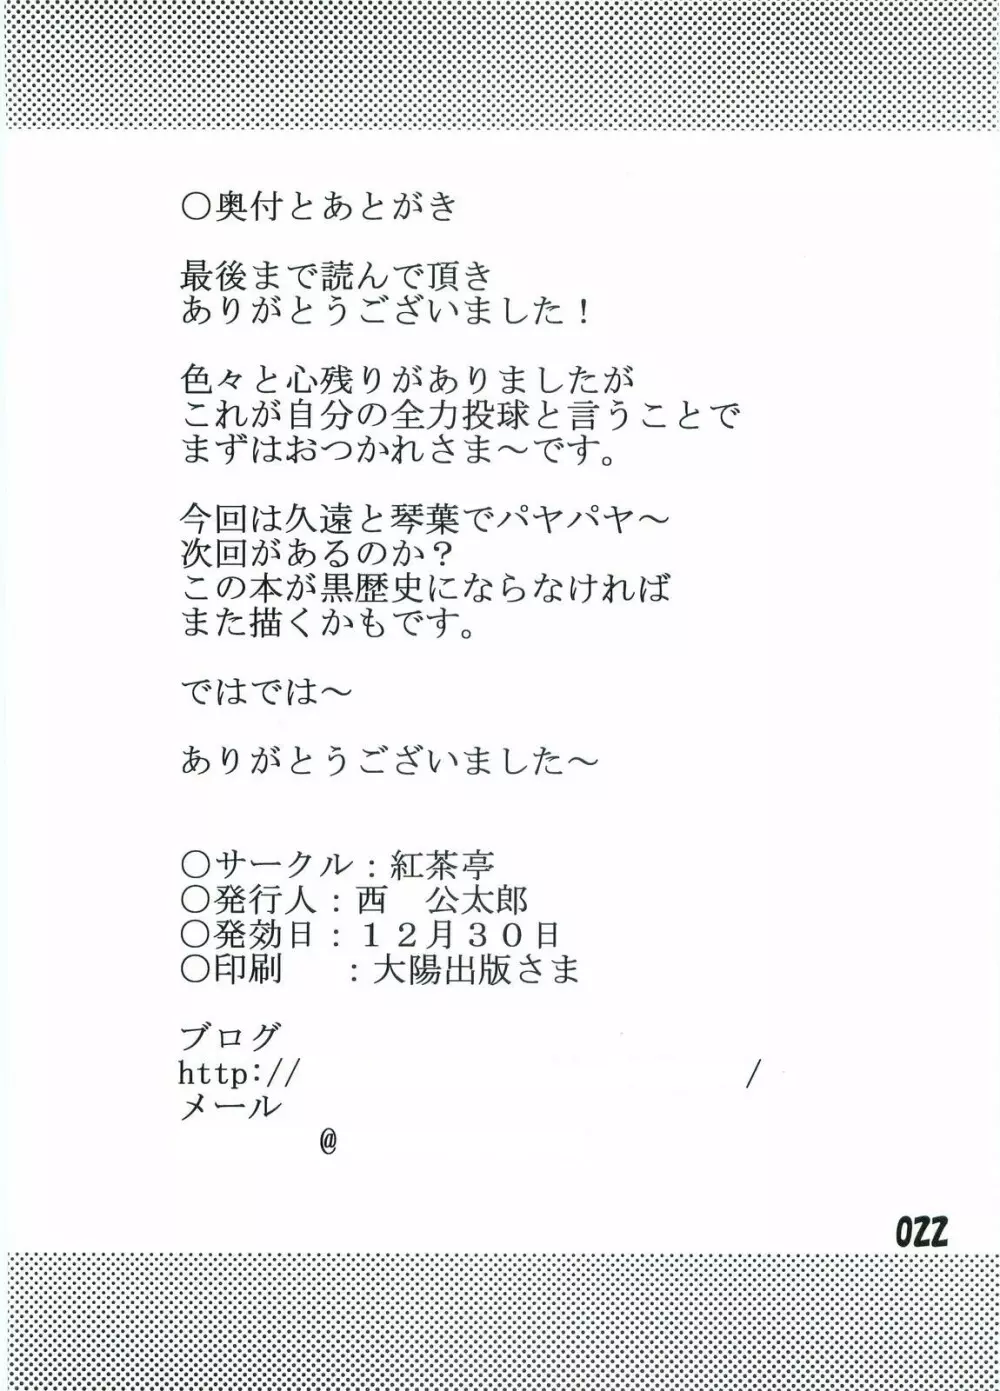 ○奥付とあとがき
最後まで読んで頂き
ありがとうございました！
色々と心残りがありましたが
これが自分の全力投球と言うことで
まずはおつかれさま～です。
今回は久遠と琴葉でパヤパヤ～
次回があるのか？
この本が黒歴史にならなければ
また描くかもです。
ではでは～
ありがとうございました～
○サークル：紅茶亭
○発行人：西　公太郎
○発効日：１２月３０日
○印刷　　：大陽出版さま
ブログ
http://　　　　　　　　　　　　/
メール
@
022